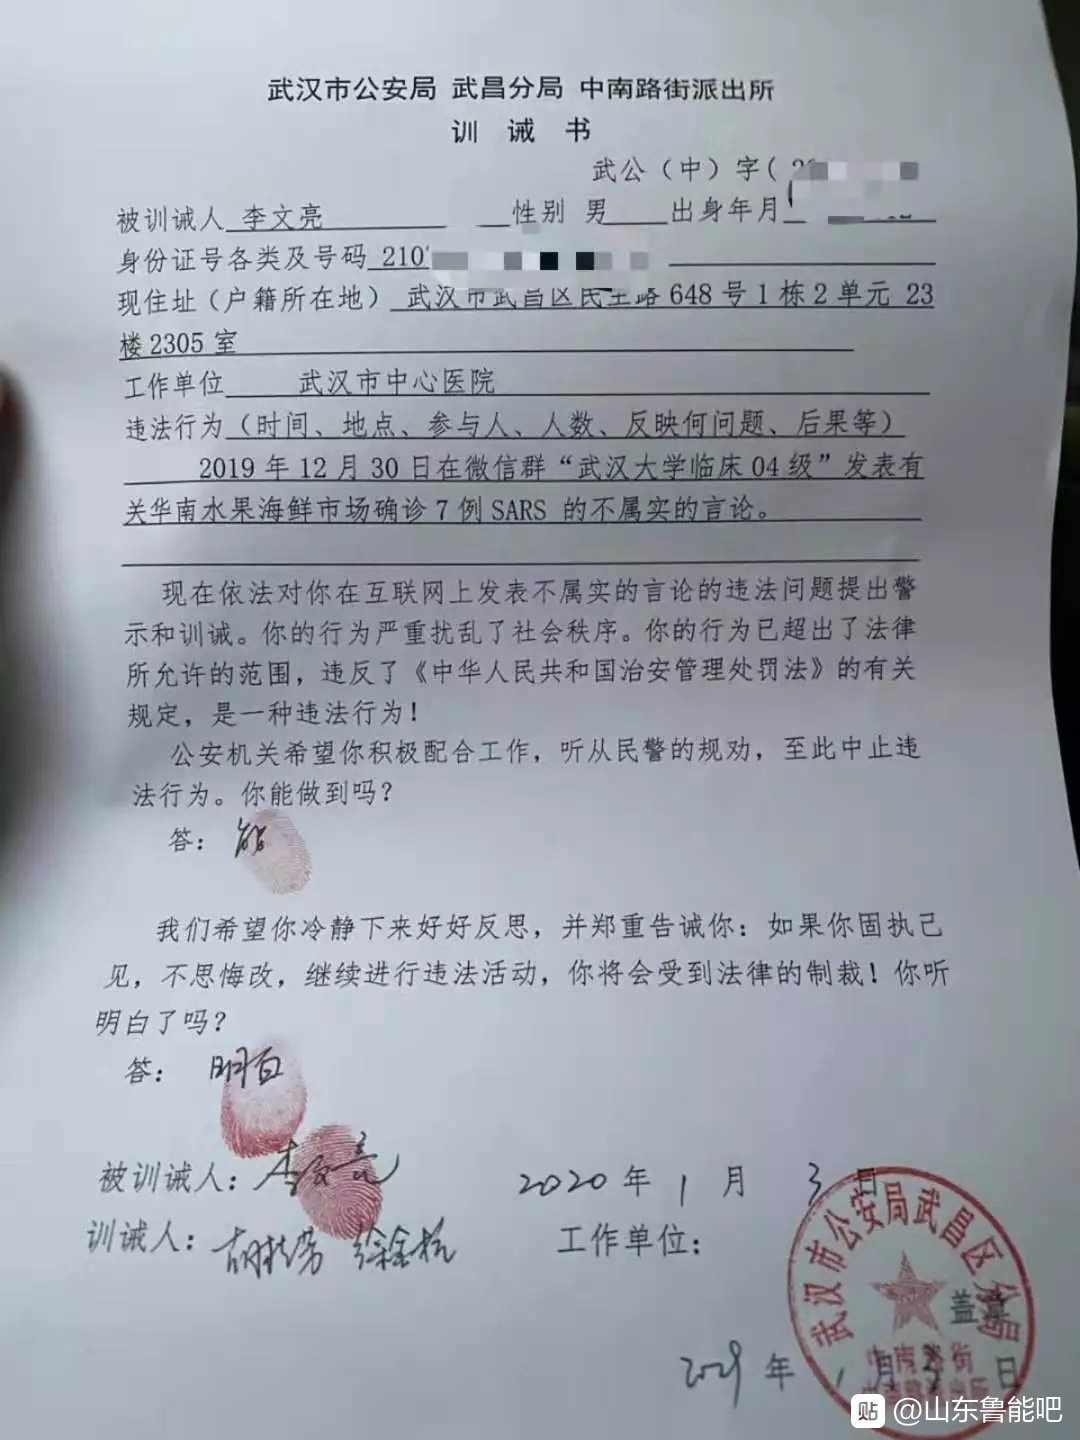 武汉市公安局 武昌分局 中南路街派出所
训 诫 书
武公（中）字（
被训诫人 李文亮 性别 男 出身年月
身份证号各类及号码 210
现住址（户籍所在地） 武汉市武昌区民主路 648 号 1 栋 2 单元 23
楼 2305 室
工作单位 武汉市中心医院
违法行为（时间、地点、参与人、人数、反映何问题、后果等）
2019 年 12 月 30 日在微信群“武汉大学临床 04 级”发表有
关华南水果海鲜市场确诊 7 例 SARS 的不属实的言论。
现在依法对你在互联网上发表不属实的言论的违法问题提出警
示和训诫。你的行为严重扰乱了社会秩序。你的行为已超出了法律
所允许的范围，违反了《中华人民共和国治安管理处罚法》的有关
规定，是一种违法行为！
公安机关希望你积极配合工作，听从民警的规劝，至此中止违
法行为。你能做到吗？
答： 能
我们希望你冷静下来好好反思，并郑重告诫你：如果你固执己
见，不思悔改，继续进行违法活动，你将会受到法律的制裁！你听
明白了吗？
答： 明白
被训诫人：李文亮 2020 年 1 月 3 日
训诫人： 胡桂芳 徐金杭 工作单位：
武汉市公安局武昌区分局
盖章
中南路街
派出所
年 1 月 3 日
贴 @山东鲁能吧